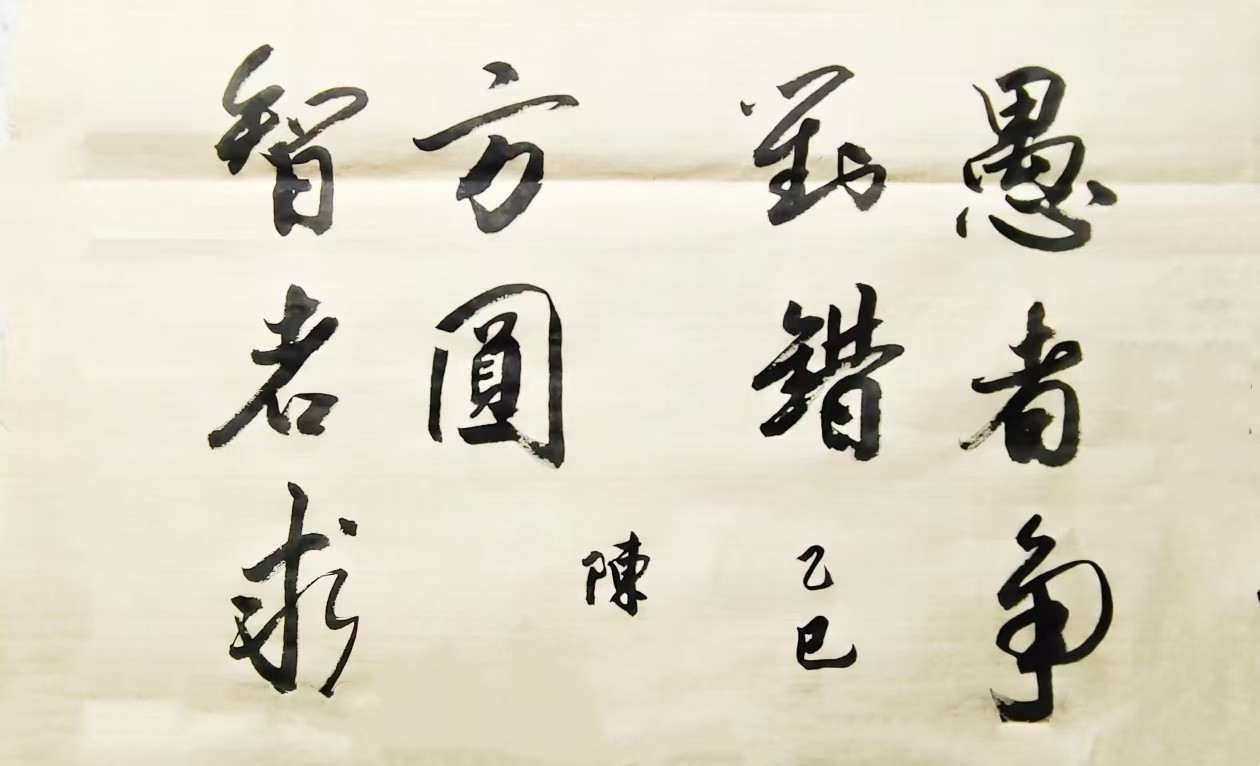 愚者争
對錯
乙巳
智者求
方圓
陳